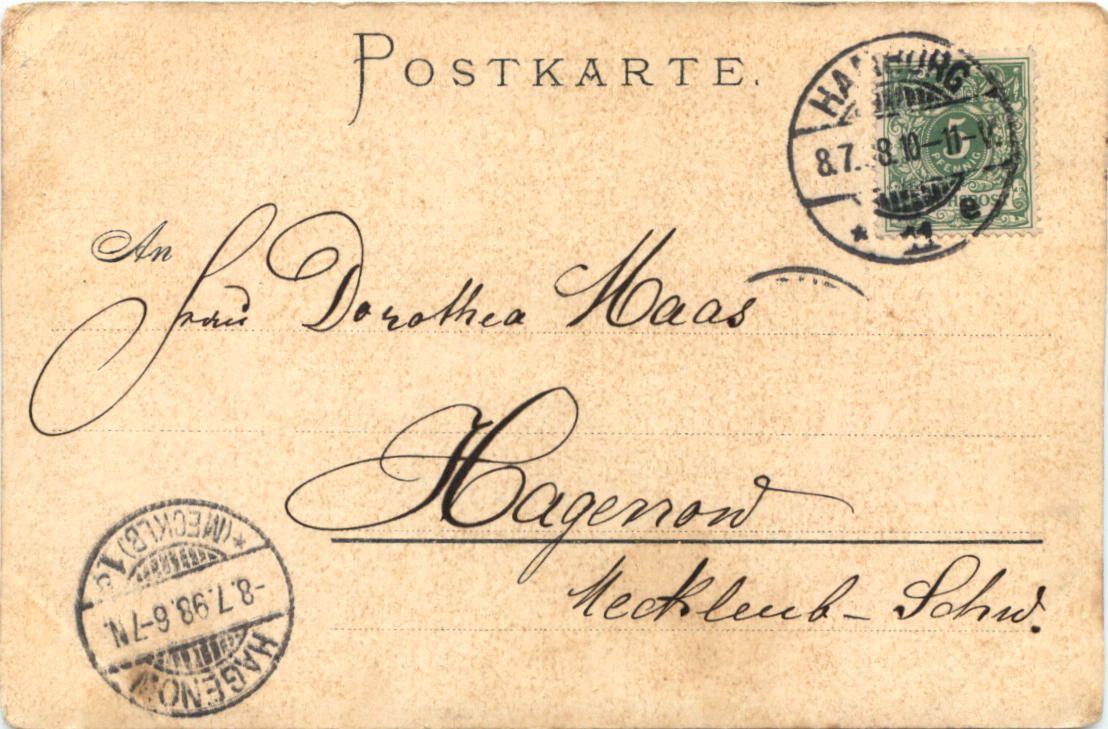 POSTKARTE.
HAMBURG
8.7. 8.10-11-V.
* 11 e
5
PFENNIG
An
Frau Dorothea Maas
Hagenow
Mecklenb - Schw.
HAGENOW
-8.7.98.6-7N.
*(MECKLB)1